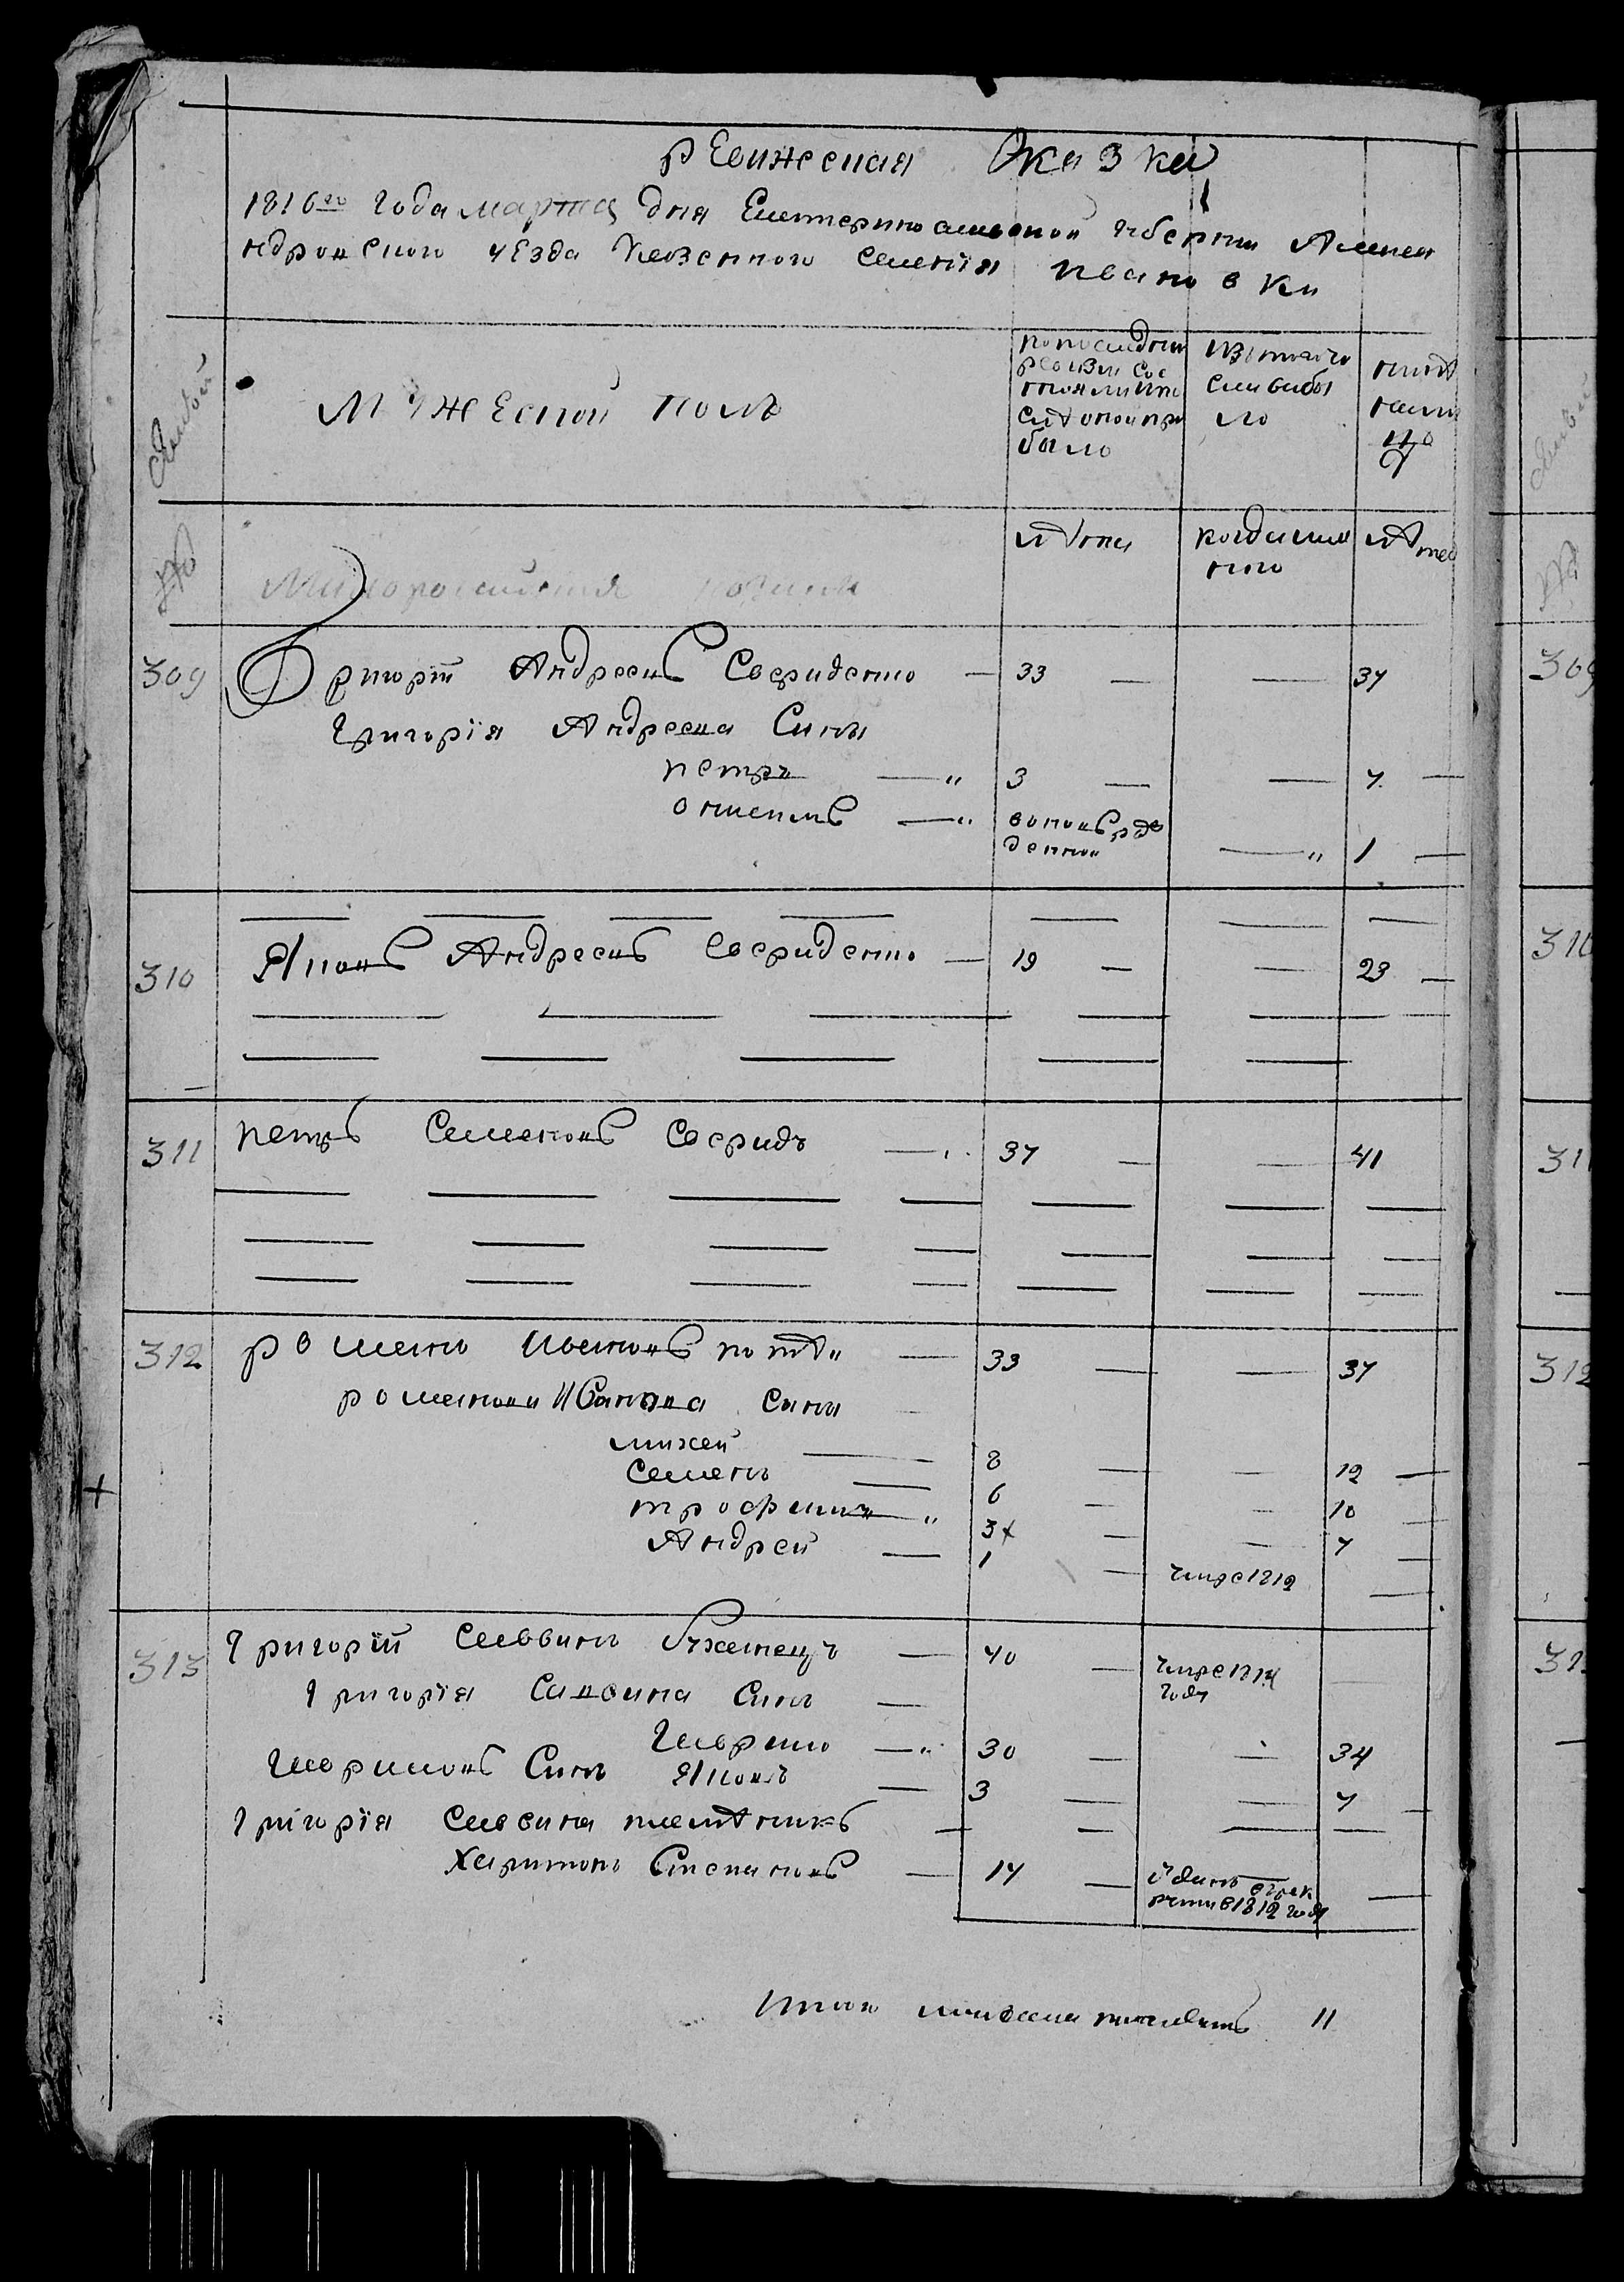 ревижеская Сказка
1816го года марта дня Екатеринославской губернии Алекса
ндровского уезда казенного селения Ивановки
Семьи
Мужеской полъ
по последней
ревизии сос
тояло и по
сле оной при
было
Изъ того чи
сла выбы
ло
ныне
на ли
цо
№
лета
когда имян
но
лета
Малоросийския
309 Григорий Андреевъ Свериденко — 33 — — 37
Григория Андреева Сины
петръ — 3 — — 7 —
онисимъ — вновь рож
денной — 1 —
310 Яковъ Андреевъ Свериденко — 19 — — 23 —
311 петръ Семеновъ Сверидъ — 37 — — 41
312 романъ Ивановъ — 33 — — 37
романа Иванова сины
михей — 8 — — 12 —
Семенъ — 6 — — 10 —
трофимъ — 3 — — 7 —
Андрей — 1 — умре 1812 —
313 Григорий Саввинъ — 40 — умре 1814
году
Григория Саввина Синъ —
Гаврило — 30 — — 34
Гавриловъ Синъ Яковъ — 3 — — 7 —
Григория Саввина племянникъ — — — —
Харитонъ Степановъ — 14 — отданъ в рек
рути в 1812 году —
Итого мужеска 11
309
310
311
312